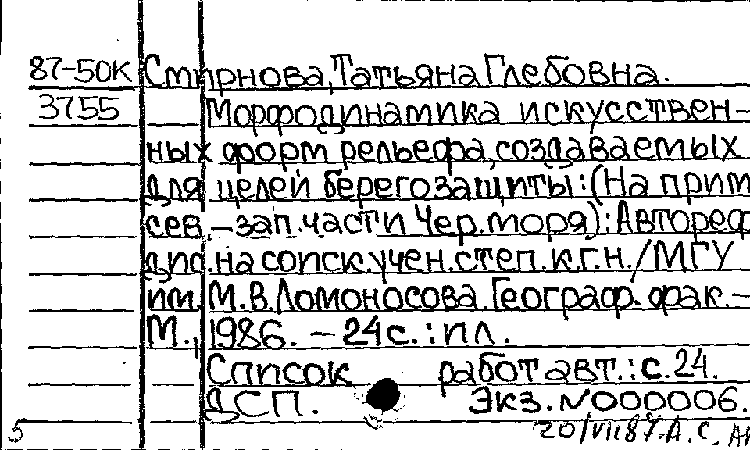 87-50К Смирнова, Татьяна Глебовна.
3755 Морфодинамика искусствен-
ных форм рельефа, создаваемых
для целей берегозащиты: (На прим
сев.-зап. части Чер. моря): Автореф
дис. на соиск. учен. степ. к.г.н. / МГУ
им. М.В. Ломоносова. Географ. фак. –
М., 1986. – 24 с. : ил.
Список работ авт.: с. 24.
ДСП. Экз. N000006.
5 20/VII 87. А.С.